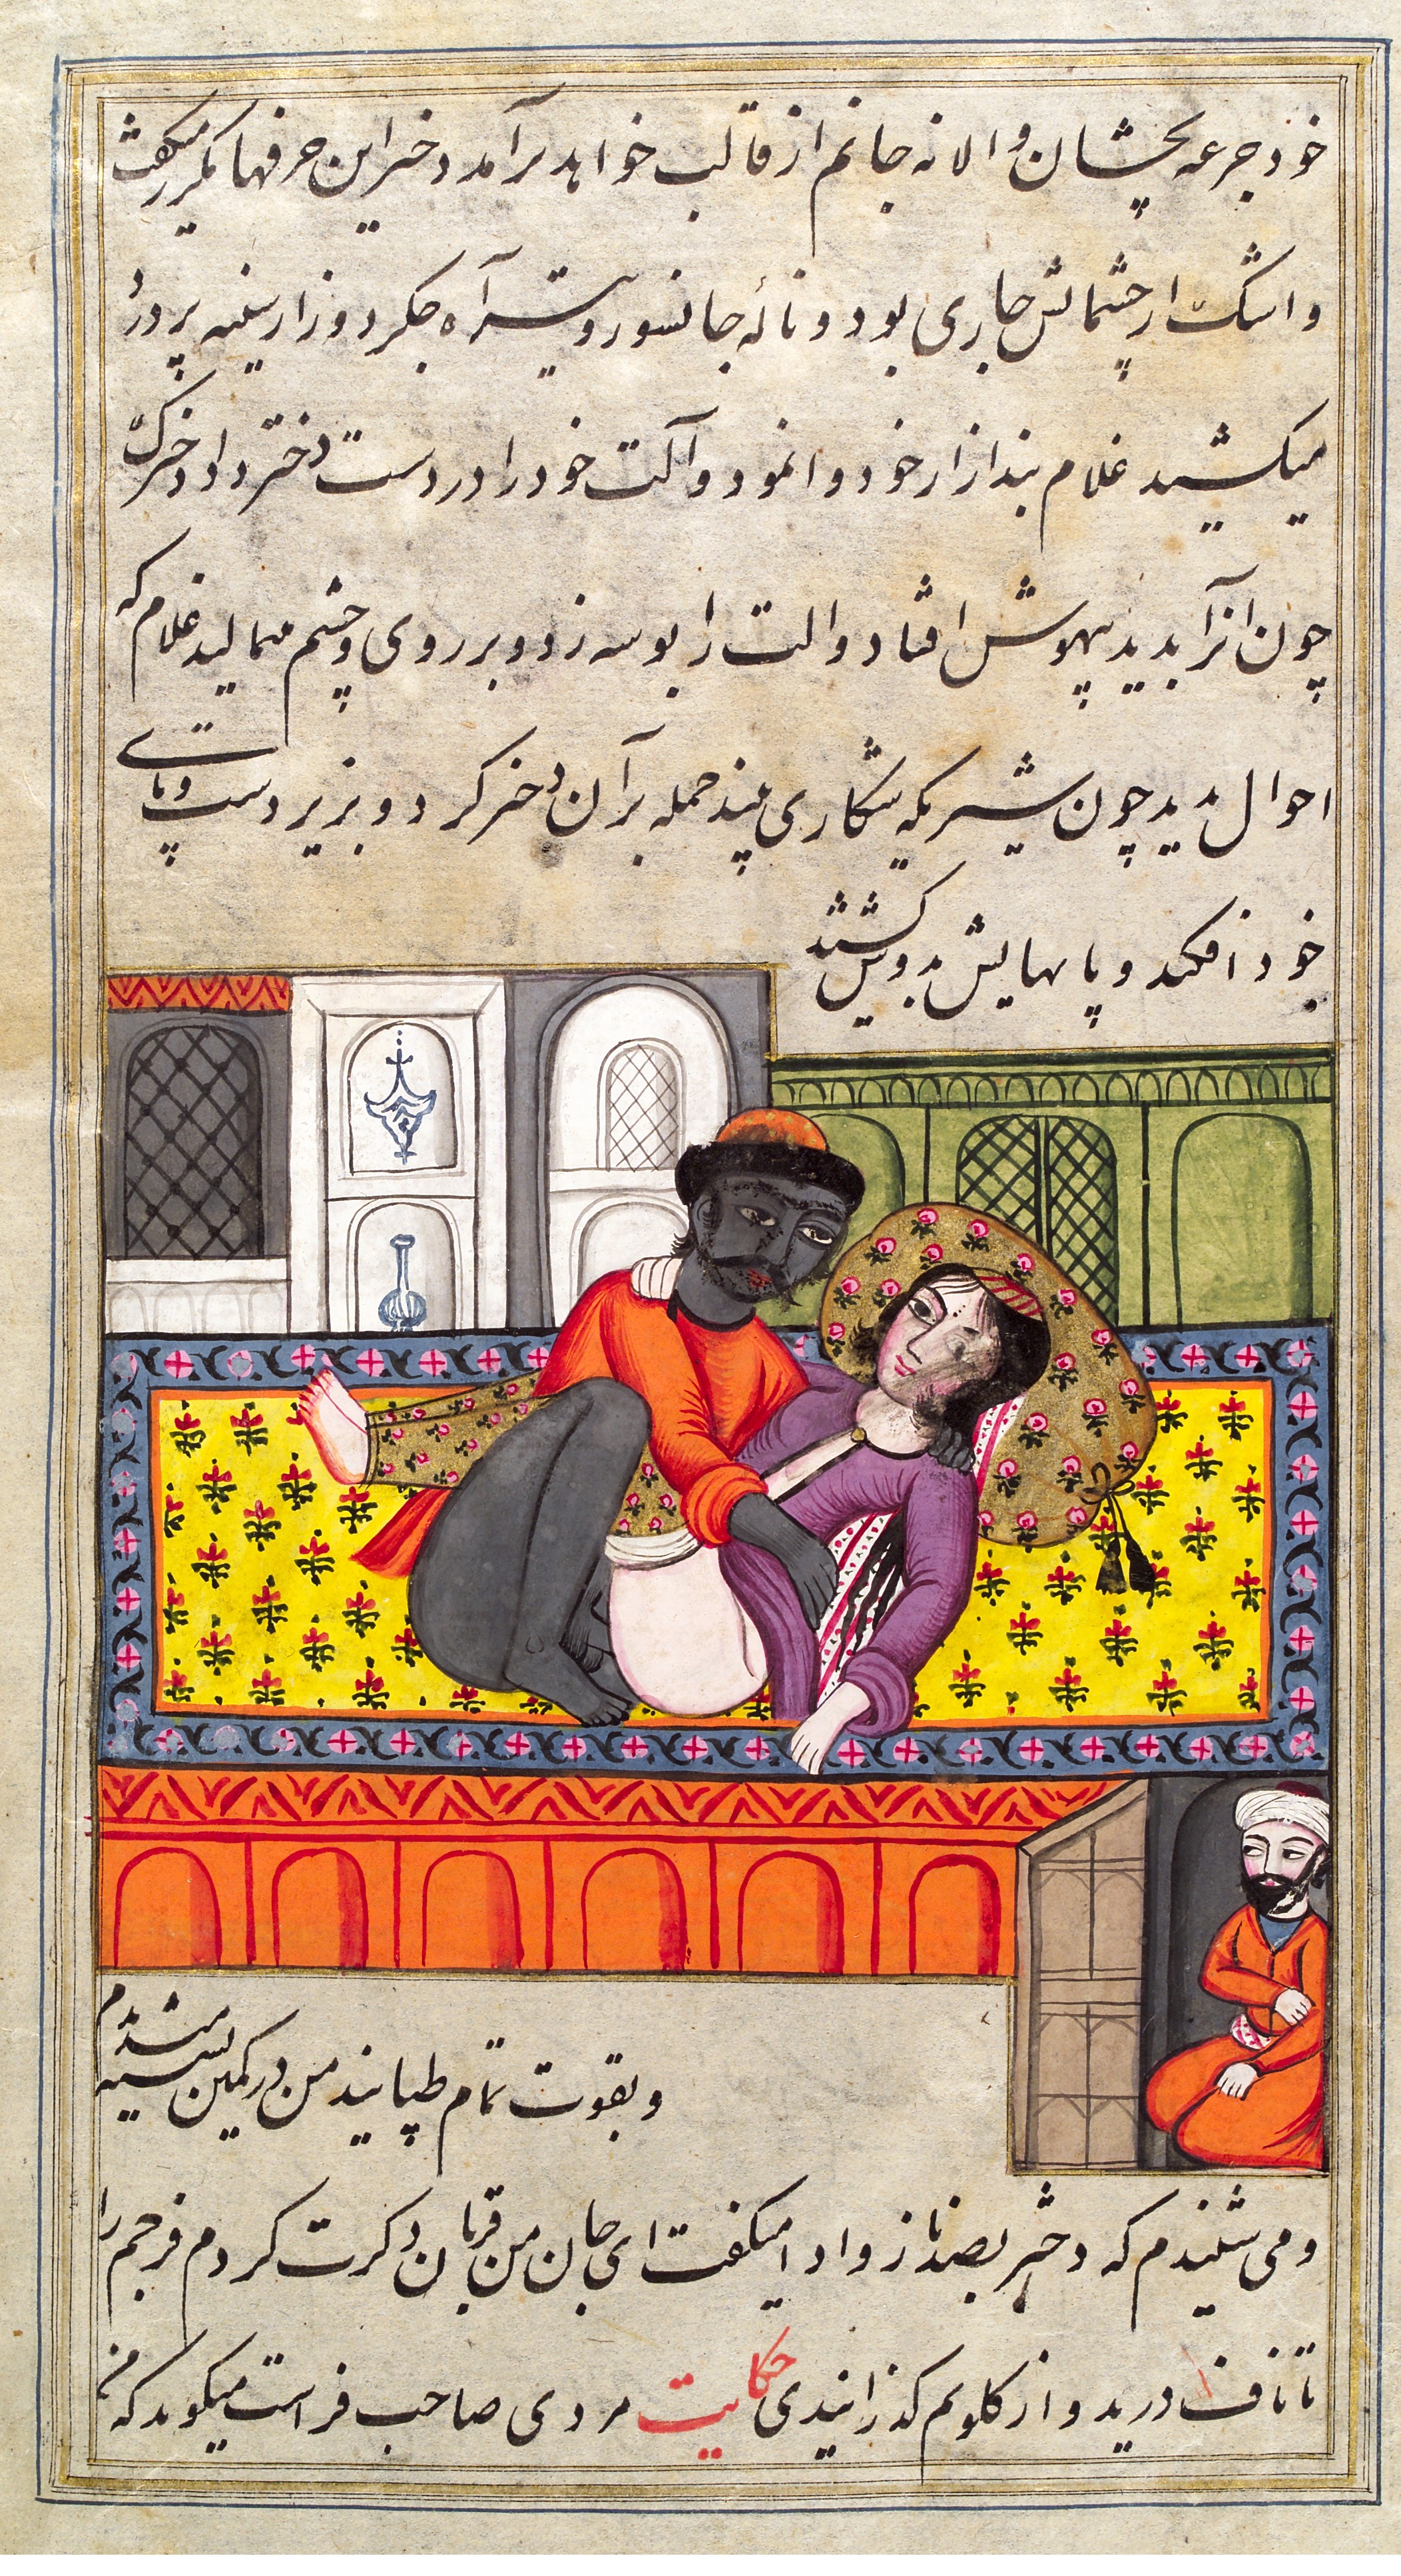 خود جرعه بچشان والا نه جانم از قالب خواهد برآمد دختر این حرفها مکرر میکفت
و اشک از چشمانش جاری بود و نائه جانسوز و تیر آه جکر دوز از سینه پر درد
میکشید غلام بند ازار خود وا نمود و آلت خود را در دست دختر داد دخترک
چون انرا بدید بیهوش افتاد و الت را بوسه زد و بر روی و چشم میمالید غلام که
احوال بدید چون شیریکه شکاری بیند حمله بر آن دختر کرد و بزیر دست و پای
خود افکند و پاهایش بدوش کشید
و بقوت تمام طپانید من در کمین نشسته
میشدم
و می شنیدم که دختر بصد ناز و ادا میکفت ای جان من قربان ذکرت کردم فرجم را
تا ناف درید و از کلویم کذرانیدی حکایت مردی صاحب فراست میکوید که